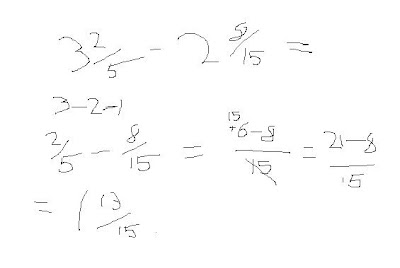 3 2/5 - 2 8/15 =
3-2-1
2/5 - 8/15 = 15+6-8/15 = 21-8/15
= 1 13/15